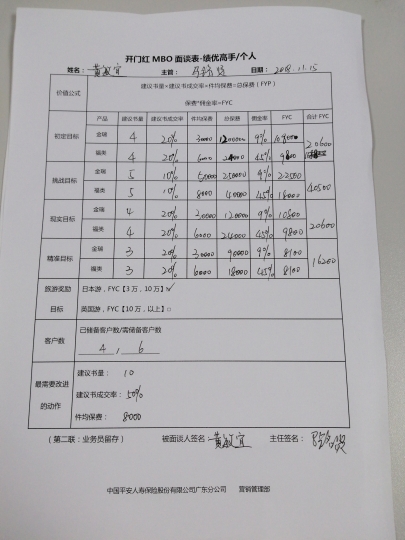 开门红 MBO 面谈表-绩优高手/个人
姓名: 黄敏宜 主管: 日期: 2018.11.15
价值公式 建议书量*建议书成交率*件均保费=总保费（FYP）
保费*佣金率=FYC
产品 建议书量 建议书成交率 件均保费 总保费 佣金率 FYC 合计 FYC
初定目标 金瑞 4 20% 30000 9%
福类 4 20% 6000 45% 20600
挑战目标 金瑞 5 10% 50000 250000 9% 22500
福类 5 10% 8000 40000 45% 18000 40500
现实目标 金瑞 4 20% 120000 9% 10800
福类 4 20% 6000 24000 45% 9800 20600
精准目标 金瑞 3 20% 30000 90000 9% 8100
福类 3 20% 6000 18000 45% 8100 16200
旅游奖励 日本游，FYC【3 万，10 万】
目标 英国游，FYC【10 万，以上】□
客户数 已储备客户数/需储备客户数
4 , 6
最需要改进的动作 建议书量： 10
建议书成交率： 50%
件均保费： 8000
（第二联：业务员留存） 被面谈人签名: 黄敏宜 主任签名:
中国平安人寿保险股份有限公司广东分公司 营销管理部